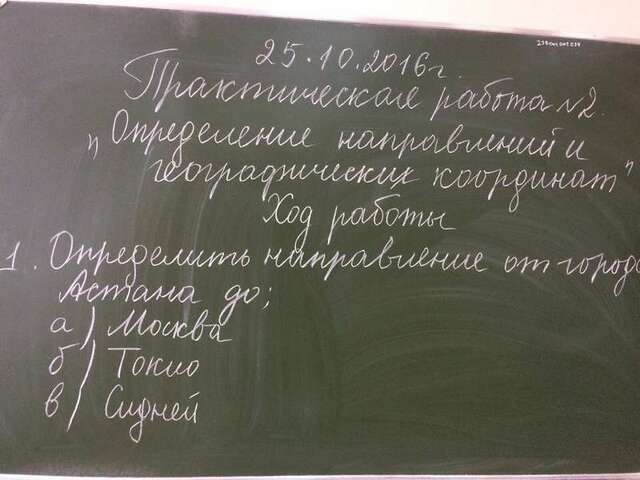 25.10.2016г.
Практическая работа №2.
„Определение направлений и
географических координат"
Ход работы
1. Определить направление от города
Астана до;
а) Москва
б) Токио
в) Сидней